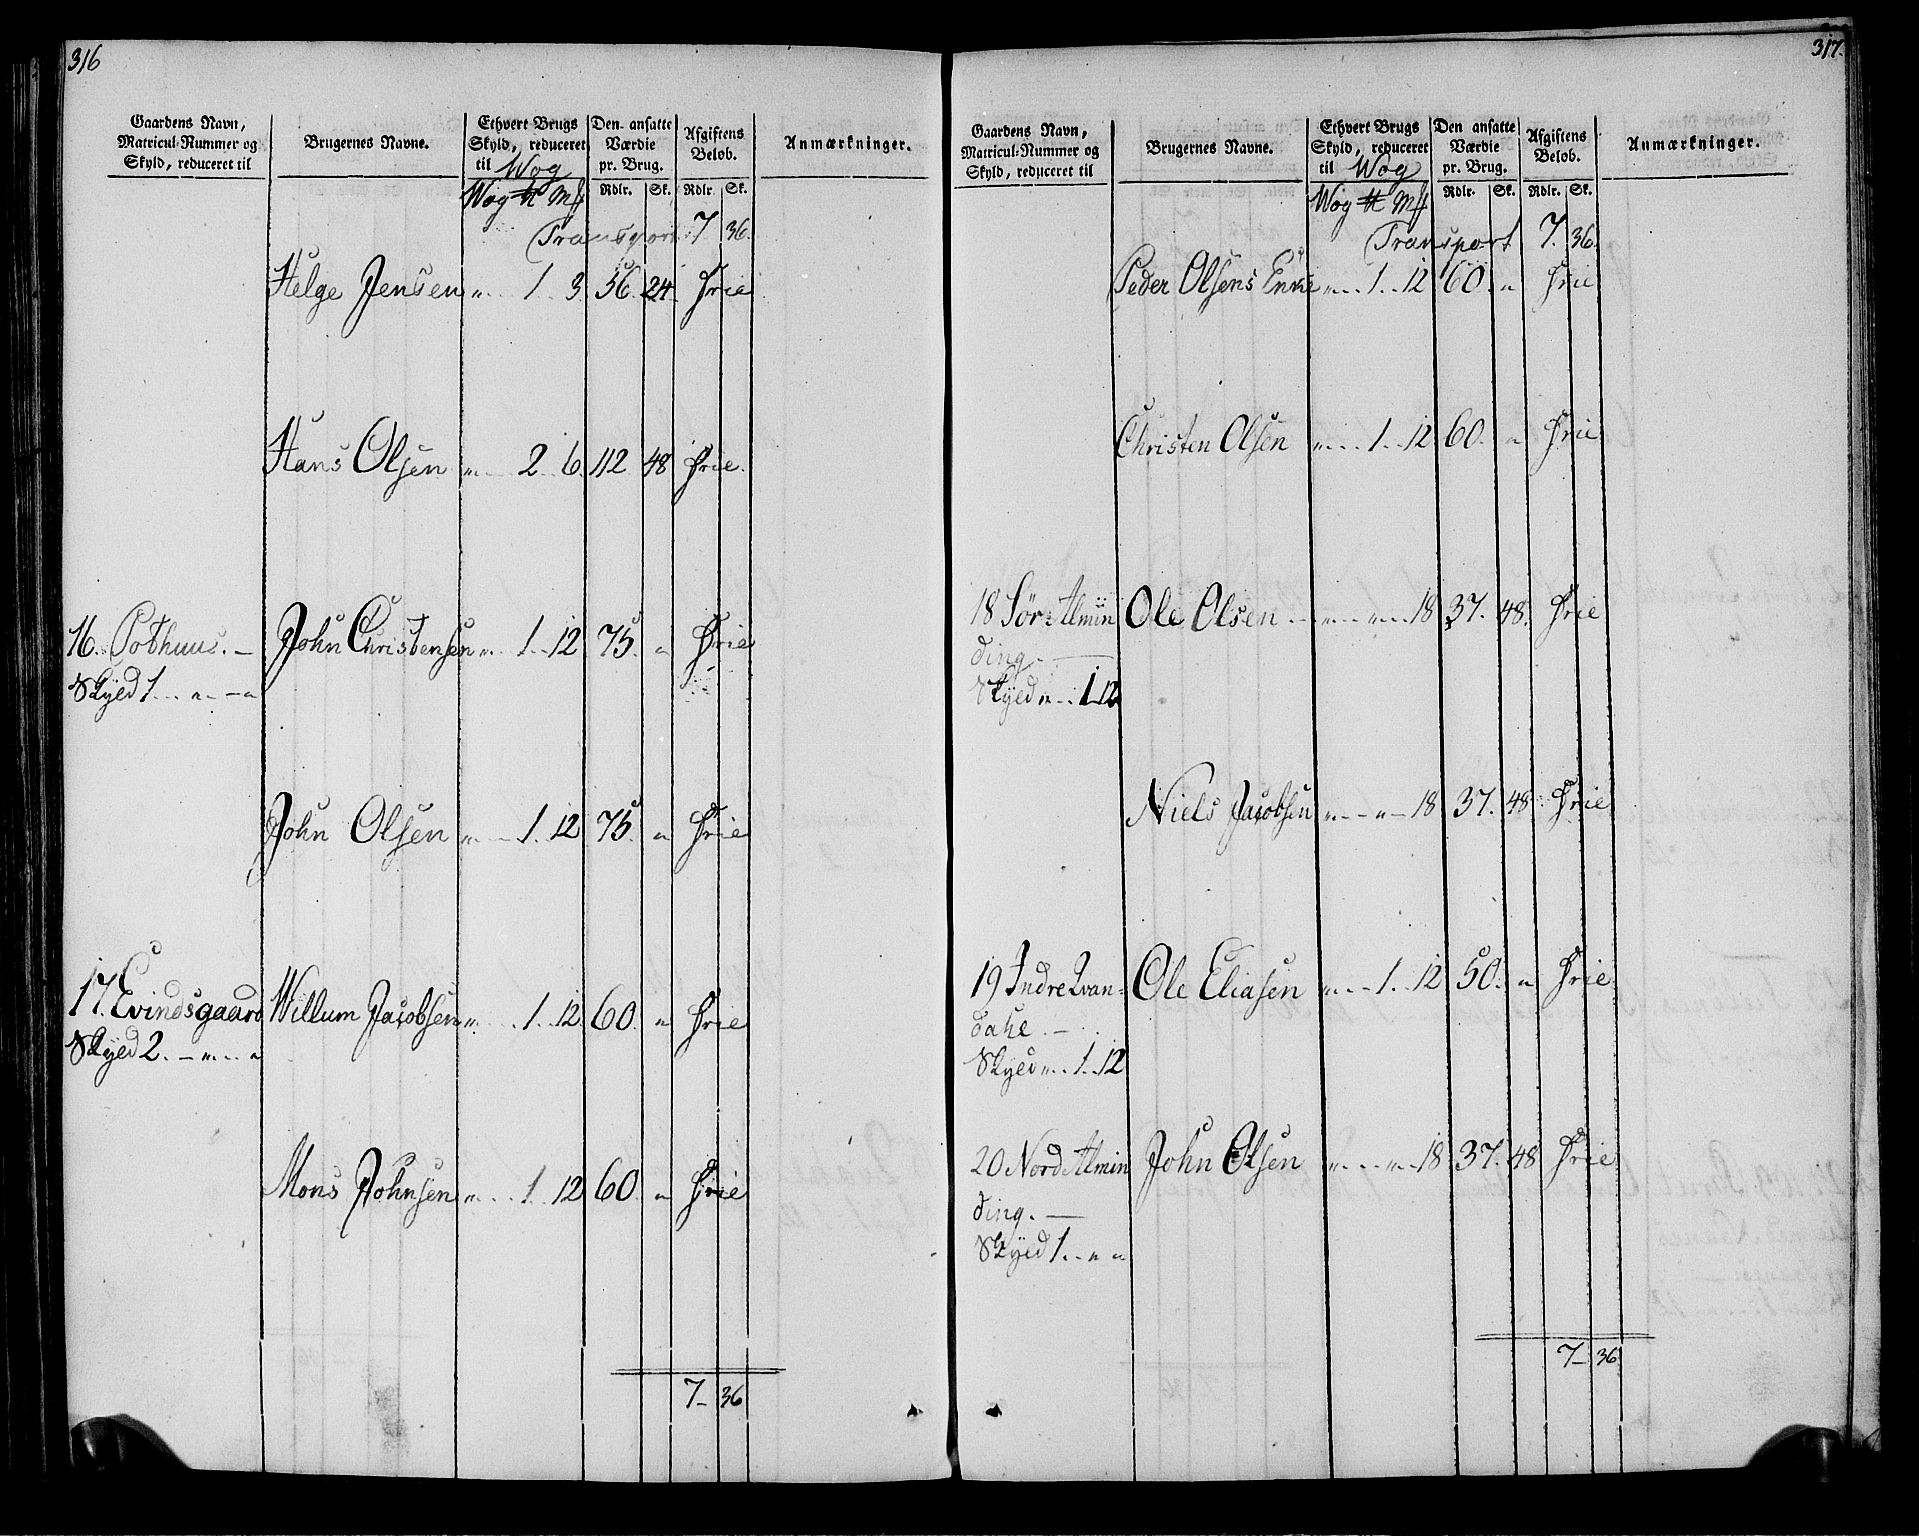 316
Gaardens Navn, Matricul-Nummer og Skyld, reduceret til
Brugernes Navne.
Ethvert Brugs Skyld, reduceret til Wog
Den ansatte Værdie pr. Brug.
Afgiftens Beløb.
Anmærkninger.
Wog ℔ Mk Rdlr. Sk. Rdlr. Sk.
Transport 7 36.
Helge Jensen „ 1 3 56 24 Frie
Hans Olsen „ 2 6 112 48 Frie.
16. Pothuus. John Christensen „ 1 12 75 „ Frie
Skyld 1 „ „
John Olsen „ 1 12 75 „ Frie
17. Evindsgaard Willum Jacobsen „ 1 12 60 „ Frie
Skyld 2. „ „
Mons Johnsen „ 1 12 60 „ Frie
7 36
317.
Gaardens Navn, Matricul-Nummer og Skyld, reduceret til
Brugernes Navne.
Ethvert Brugs Skyld, reduceret til Wog
Den ansatte Værdie pr. Brug.
Afgiftens Beløb.
Anmærkninger.
Wog ℔ Mk Rdlr. Sk. Rdlr. Sk.
Transport 7. 36.
Peder Olsens Enke „ 1 12 60. „ Frie
Christen Olsen „ 1 12 60. „ Frie
18 Sør-Almin Ole Olsen „ „ 18 37. 48. Frie
ding.
Skyld „ 1 12
Niels Jacobsen „ „ 18 37. 48 Frie
19 Indre Qvan- Ole Eliasen „ 1 12 50. „ Frie
dahl.
Skyld „ 1 12
20 Nord Almin John Olsen „ „ 18 37. 48 Frie
ding.
Skyld 1. „ „
7 36